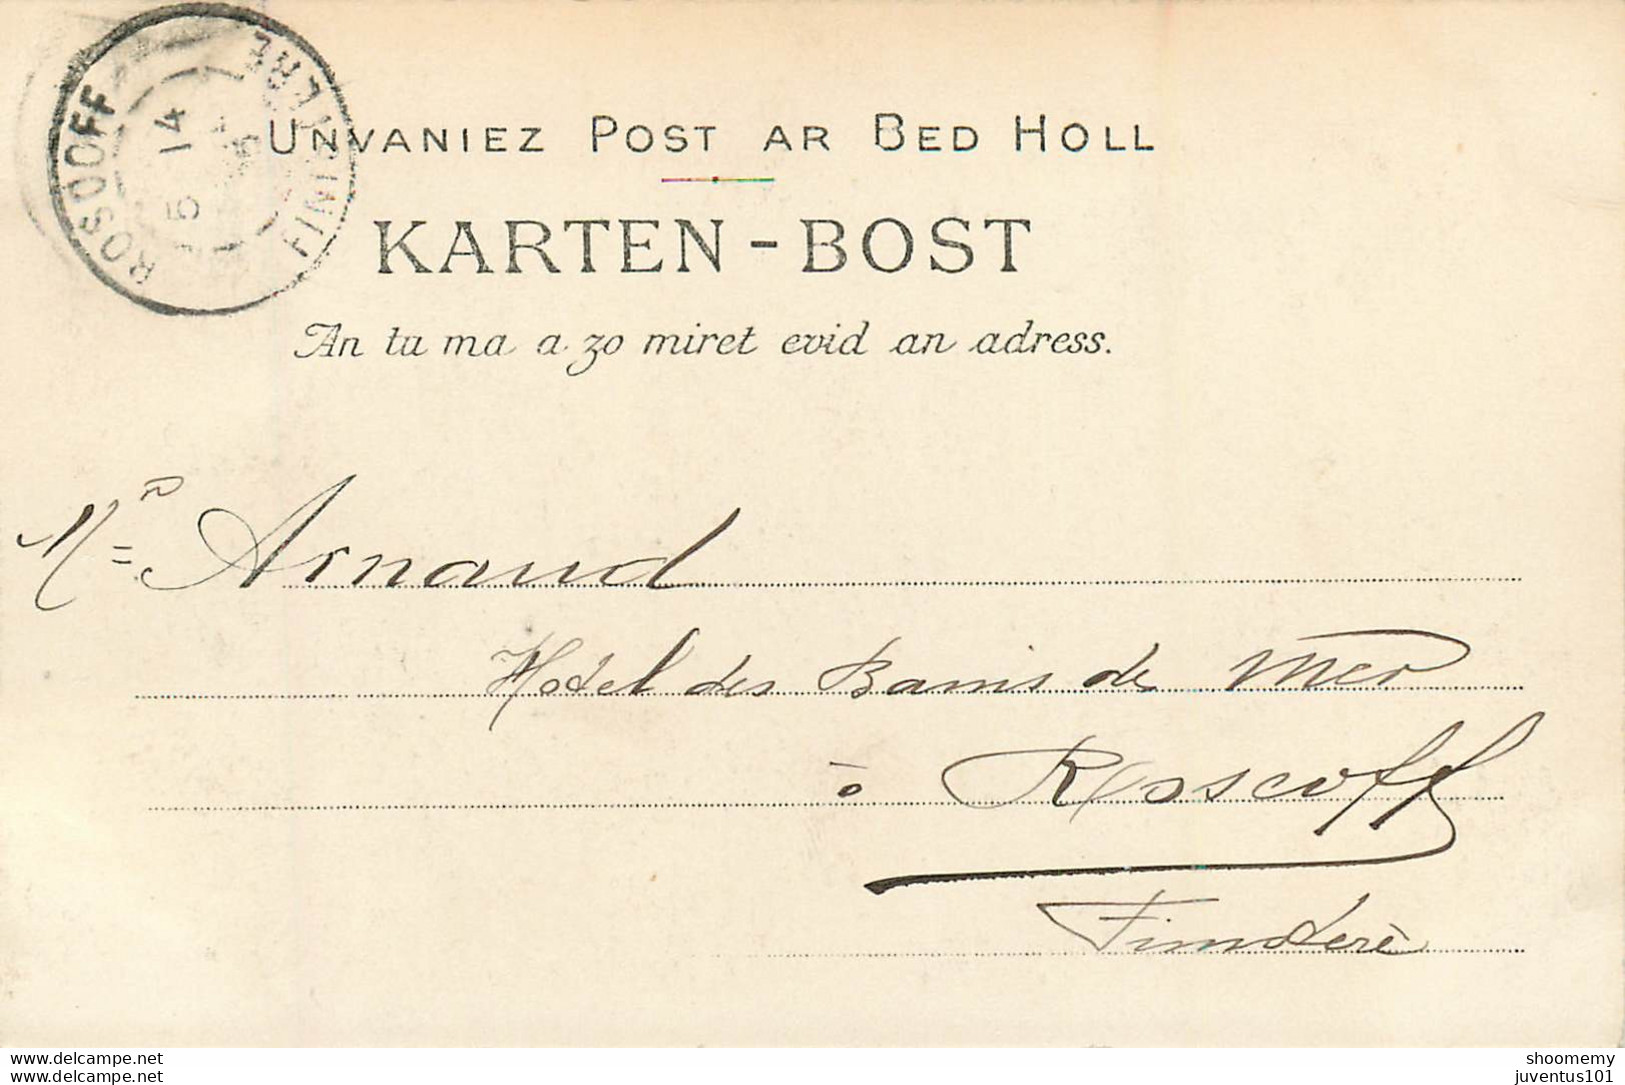 ROSCOFF
5 14
FINISTÈRE
UNVANIEZ POST AR BED HOLL
KARTEN-BOST
An tu ma a zo miret evid an adress.
Mr Arnaud
Hotel des Bains de Mer
à Roscoff
Finistère
www.delcampe.net
www.delcampe.net
shoomemy
juventus101